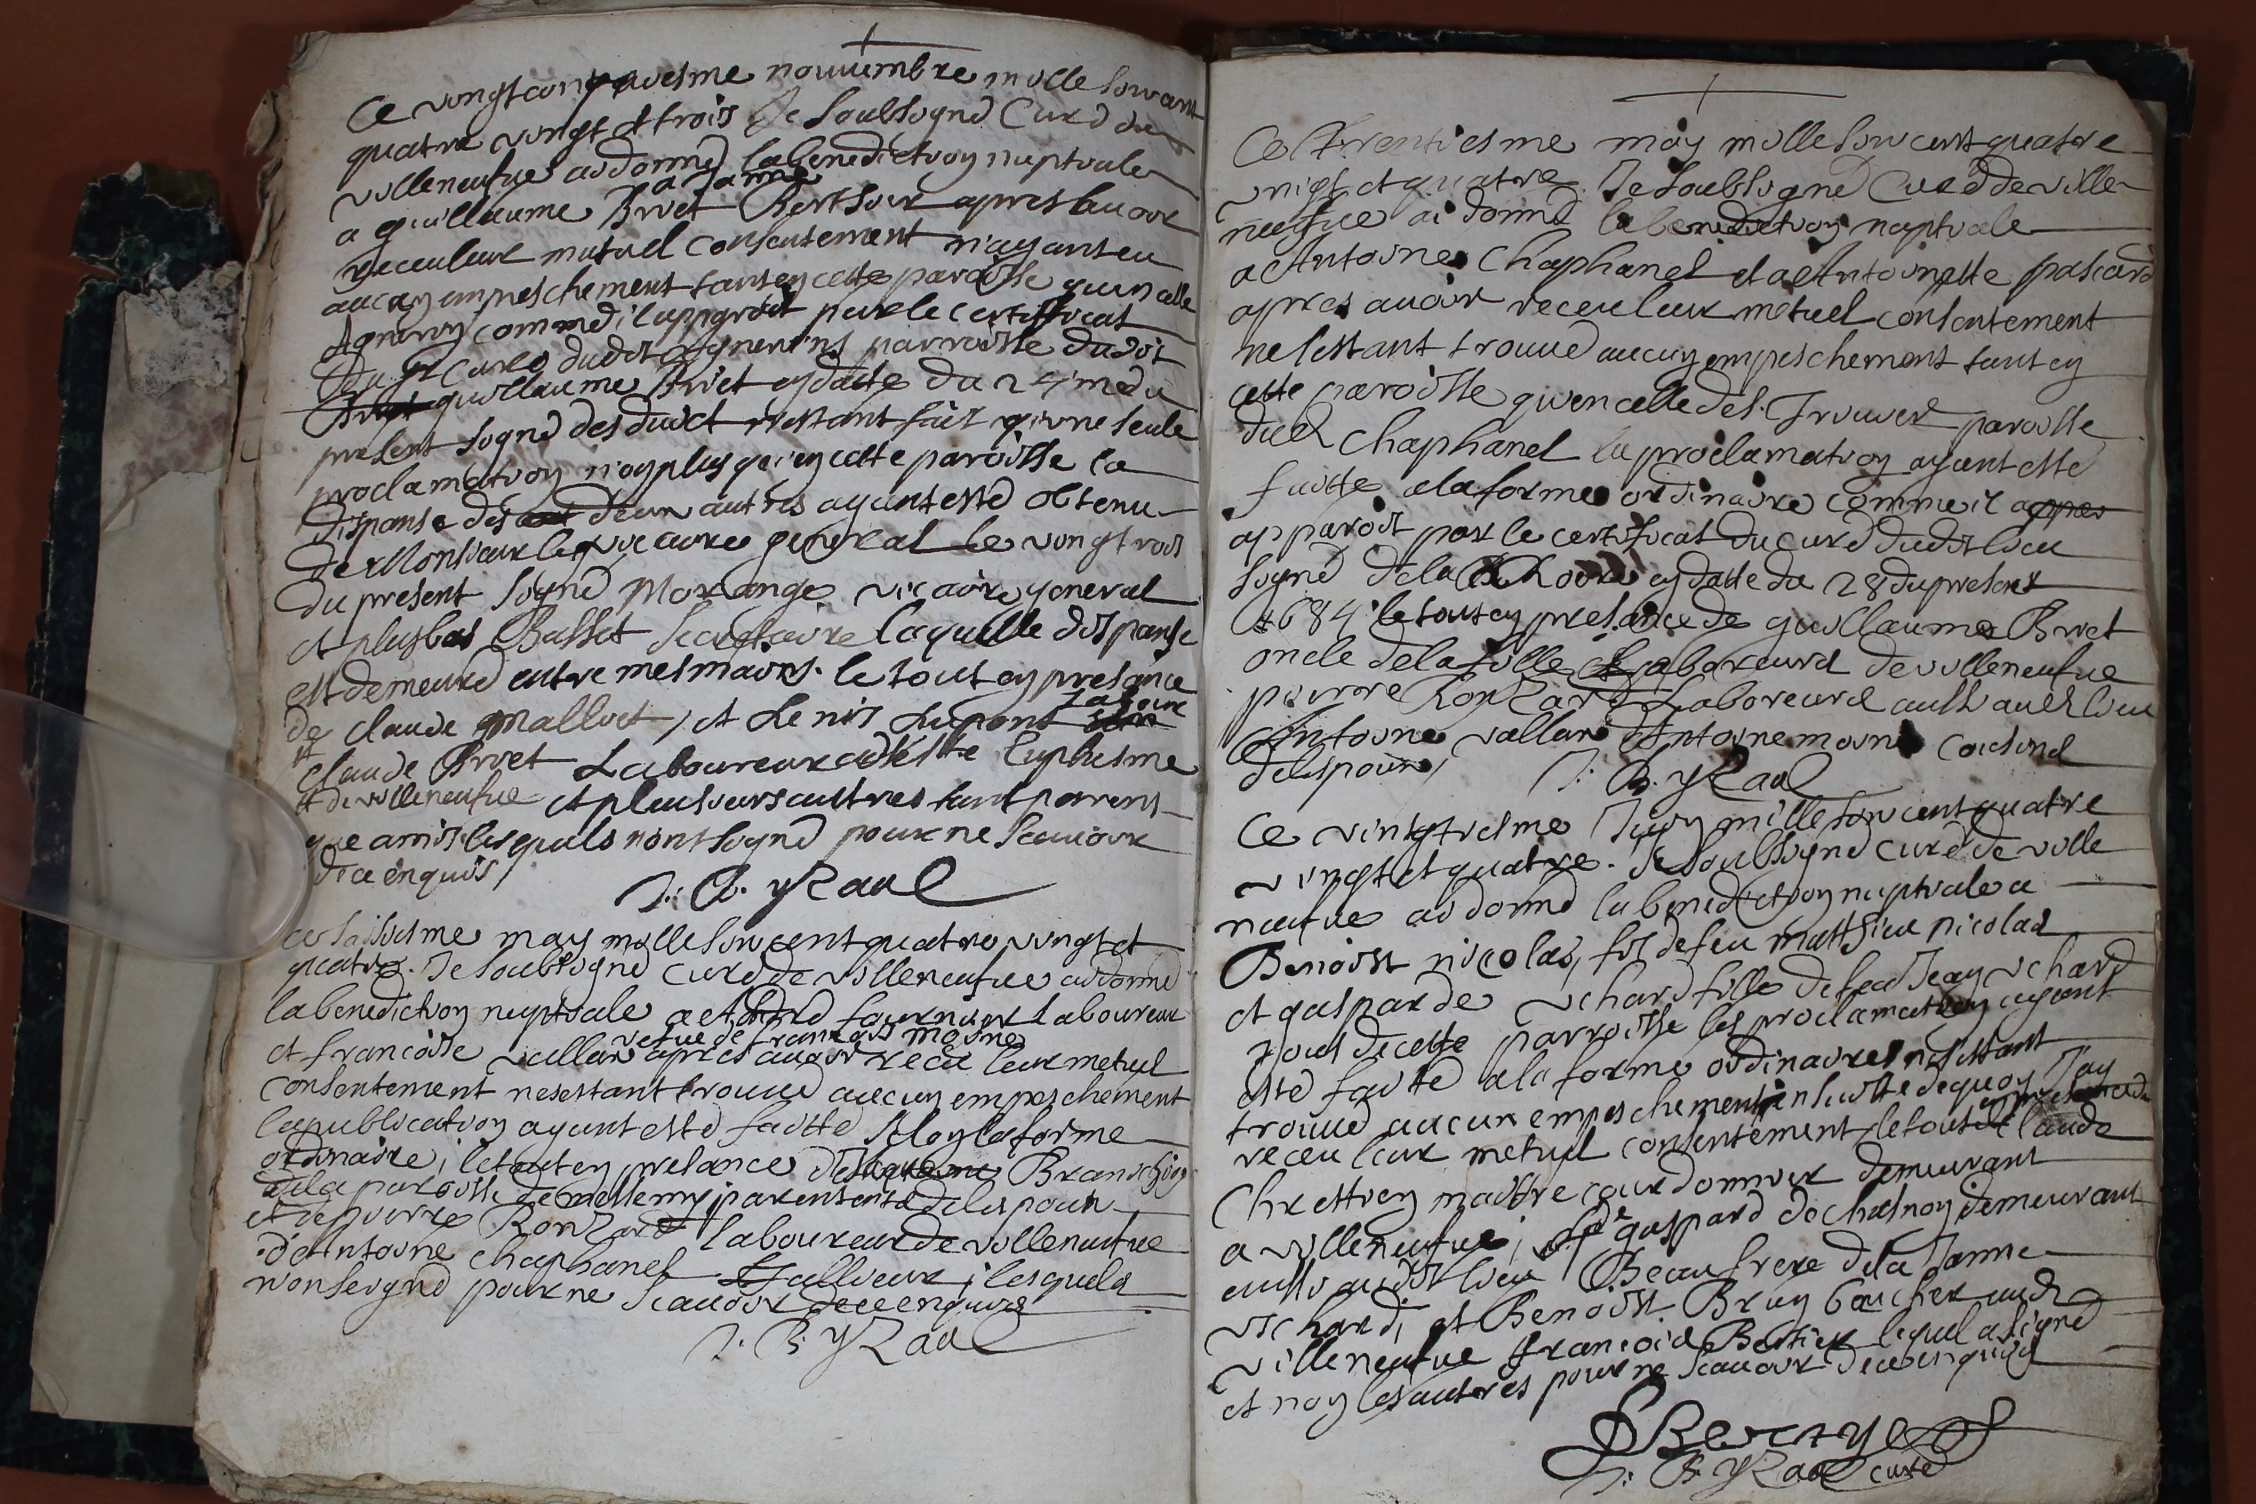 Ce vingt cinquiesme nouuembre mille six cent
quatre vingt et trois Je soubsigné Curé de
villeneufue ai donné la benediction nuptiale
a guillaume Briet a Janne Bertheur apres auoir
receu leur mutuel consentement n'ayant eu
aucun empeschement tant en cette paroisse qu'en celle
d'Agneriny comme il apparoit par le certificat
du Sr Curé dudit Agnerins parroisse dudit
guillaume Briet en datte du 24me du
present signé des duict n'estant fait qu'une seule
proclamation non plus qu'en cette paroisse la
dispanse des deux autres ayant esté obtenu
de Monsieur le vicaire general le vingt trois
du present signé Morange vicaire general
et plus bas Basset Secretaire laquelle dispanse
est demeuré entre mes mains. le tout en presance
de Claude Malloct, et Denis Dupont Laboureur
et Claude Briet Laboureur Euphesme
et de villeneufue et pleusieurs autres tant parens
que amis lesquels n'ont signé pour ne scauoir
de ce enquis
J: B. yRaal
ce saisiesme may mille six cent quatre vingt et
quatre. Je soubsigné curé de villeneufue ai donné
la benediction nuptiale a et fournier laboureur
et francoise vallan vefue de francois moine apres auoir receu leur metuel
consentement ne sestant trouué aucun empeschement
la publication ayant esté faitte selon la forme
ordinaire, le tout en presance de Branchin
de la paroisse de parens de lespoux
et de pierre Ronzard laboureur de villeneufue
d'Antoine Chaphanel tallieur, lesquels
n'on seigné pour ne scauoir de ce enquis
J. B. yRaal
Ce trentiesme may mille six cent quatre
vingt et quatre Je soubsigné Curé de ville
neufue ai donné la benediction nuptiale
a Antoine Chaphanel et a Antoinette pascard
apres auoir receu leur metuel consentement
ne sestant trouué aucun empeschement tant en
cette paroisse qu'en celle de St Triuier paroisse
dud Chaphanel la proclamation ayant esté
faitte a la forme ordinaire comme il appar
apparoit par le certificat du curé dudit lieu
signé de la Roore en datte du 28 du present
1684 le tout en presance de guillaume Briet
oncle de la fille laboureurd de villeneufue
pierre Ronzard Laboreurd aussi aud lieu
Antoine vallan Antoine moine coisind
de lespoux,
J: B. yRaal
Ce vingtiesme Juin mille six cent quatre
vingt et quatre. Je soubsigné curé de ville
neufue ai donné la benediction nuptiale a
Benoist nicolas, fis de feu matthieu nicolas
et gasparde vchard fille de feu Jean vchard
tous de cette parroisse les proclamation ayant
esté faitte a la forme ordinaire n'estant
trouué aucun empeschement en suitte dequoy J'ay
receu leur metuel consentement le tout en presance de Claude
Chrestien maistre courdonnier demeurant
a villeneufue, gaspard de chasnoy demeurant
aussi audit lieu Beaufrere de la Janne
vchard, et Benoist Brun boucher aud
villeneufue francois Bertier lequel a signé
et non les autres pour ne scauoir de ce enquis
J: B. yRaal curé